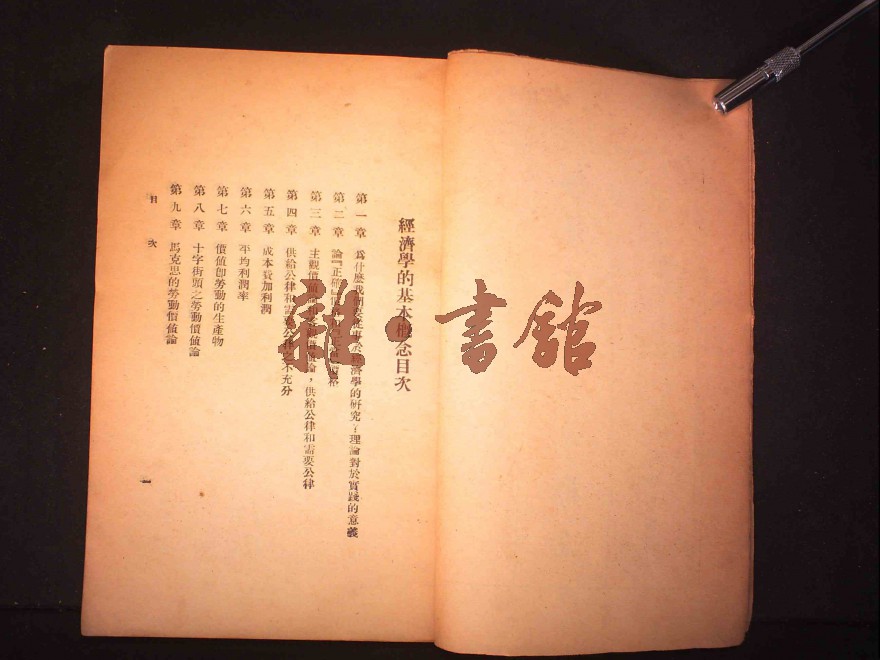 經濟學的基本概念目次
第一章 爲什麽我們要從事於經濟學的硏究：理論對於實踐的意義
第二章 論『正確』價格
第三章 主觀價値論和客觀價値論，供給公律和需要公律
第四章 供給公律和需要公律之不充分
第五章 成本費加利潤
第六章 平均利潤率
第七章 價値卽勞動的生產物
第八章 十字街頭之勞動價値論
第九章 馬克思的勞動價値論
目次
一
雜·書館